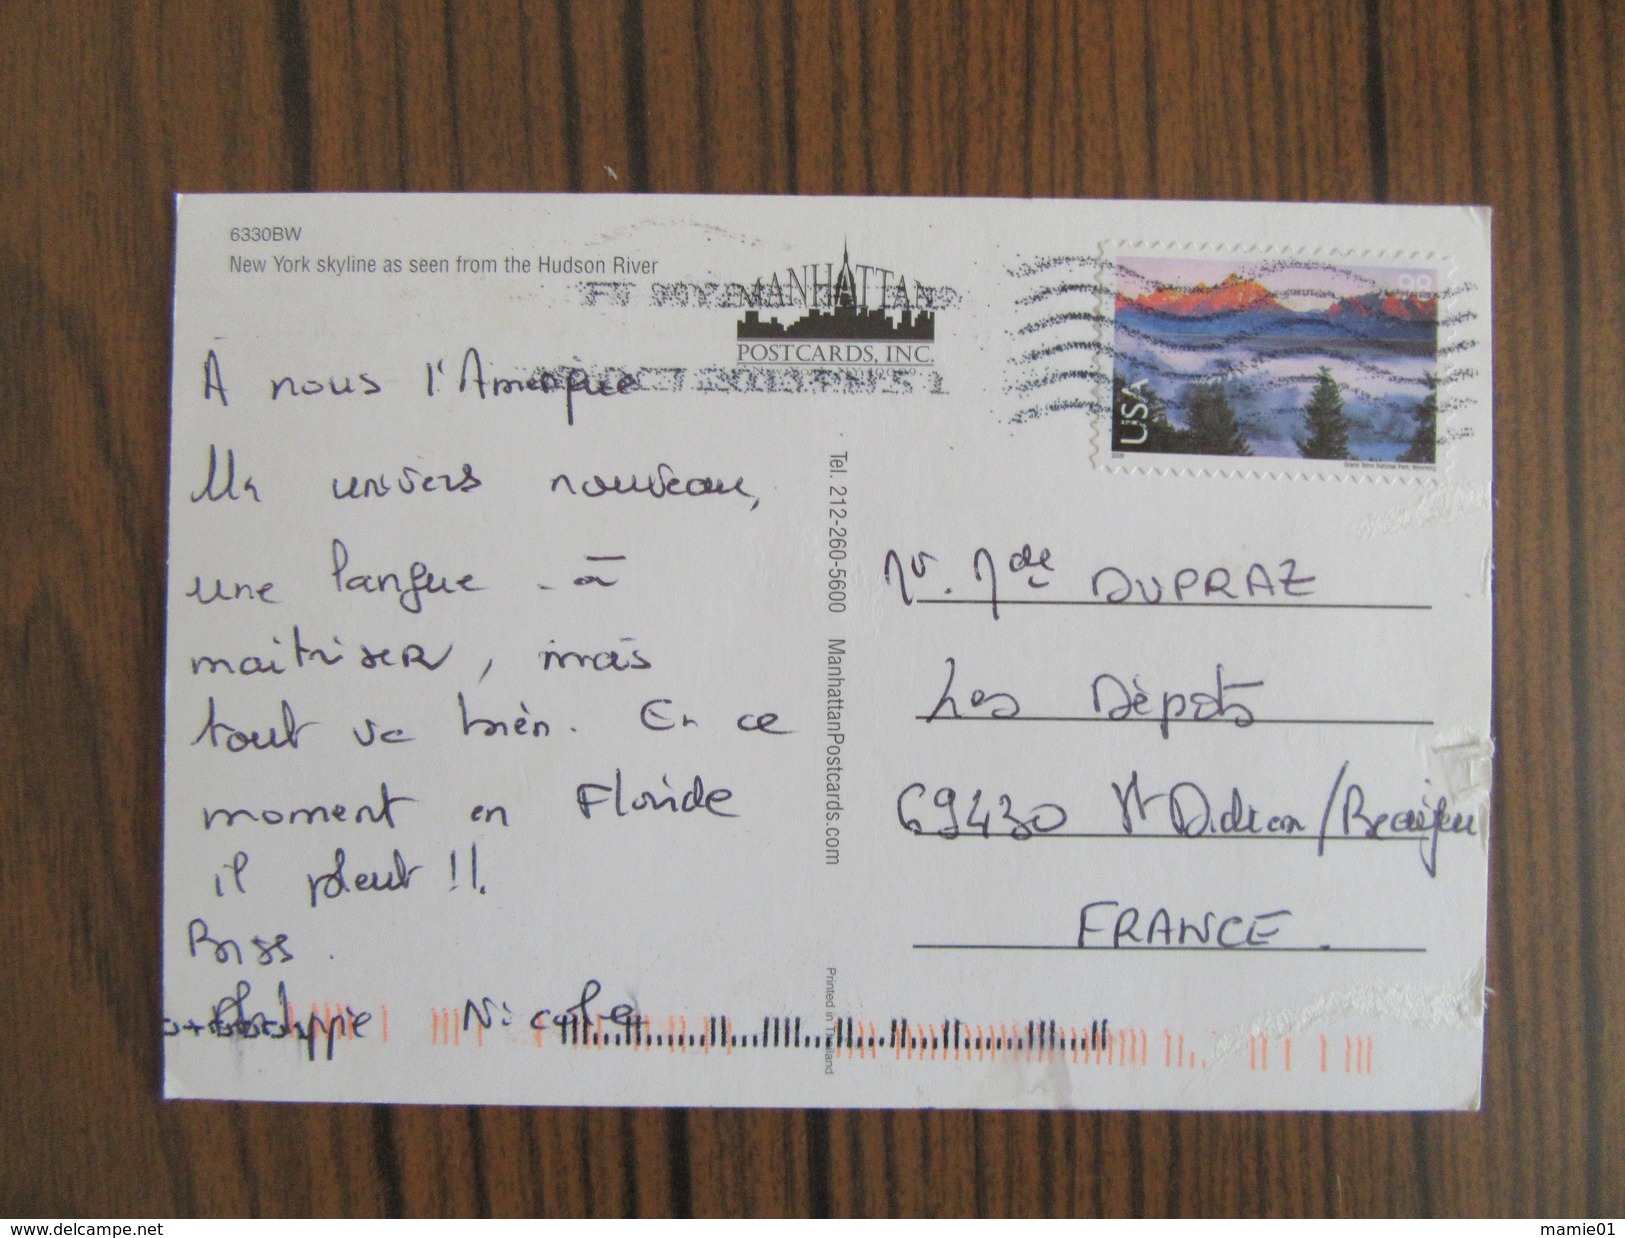 6330BW
New York skyline as seen from the Hudson River
MANHATTAN
POSTCARDS, INC.
À nous l'Amérique
Un univers nouveau,
une langue à
maitriser, mais
tout va bien. En ce
moment en Floride
il pleut !!.
Biss.
Philippe Nicole
Tel. 212-260-5600 ManhattanPostcards.com
Printed in Thailand
USA
98
2009
Grand Teton National Park, Wyoming
Mr. Mde DUPRAZ
Les Dépôts
69430 St Didier/Beaujeu
FRANCE.
www.delcampe.net
mamie01